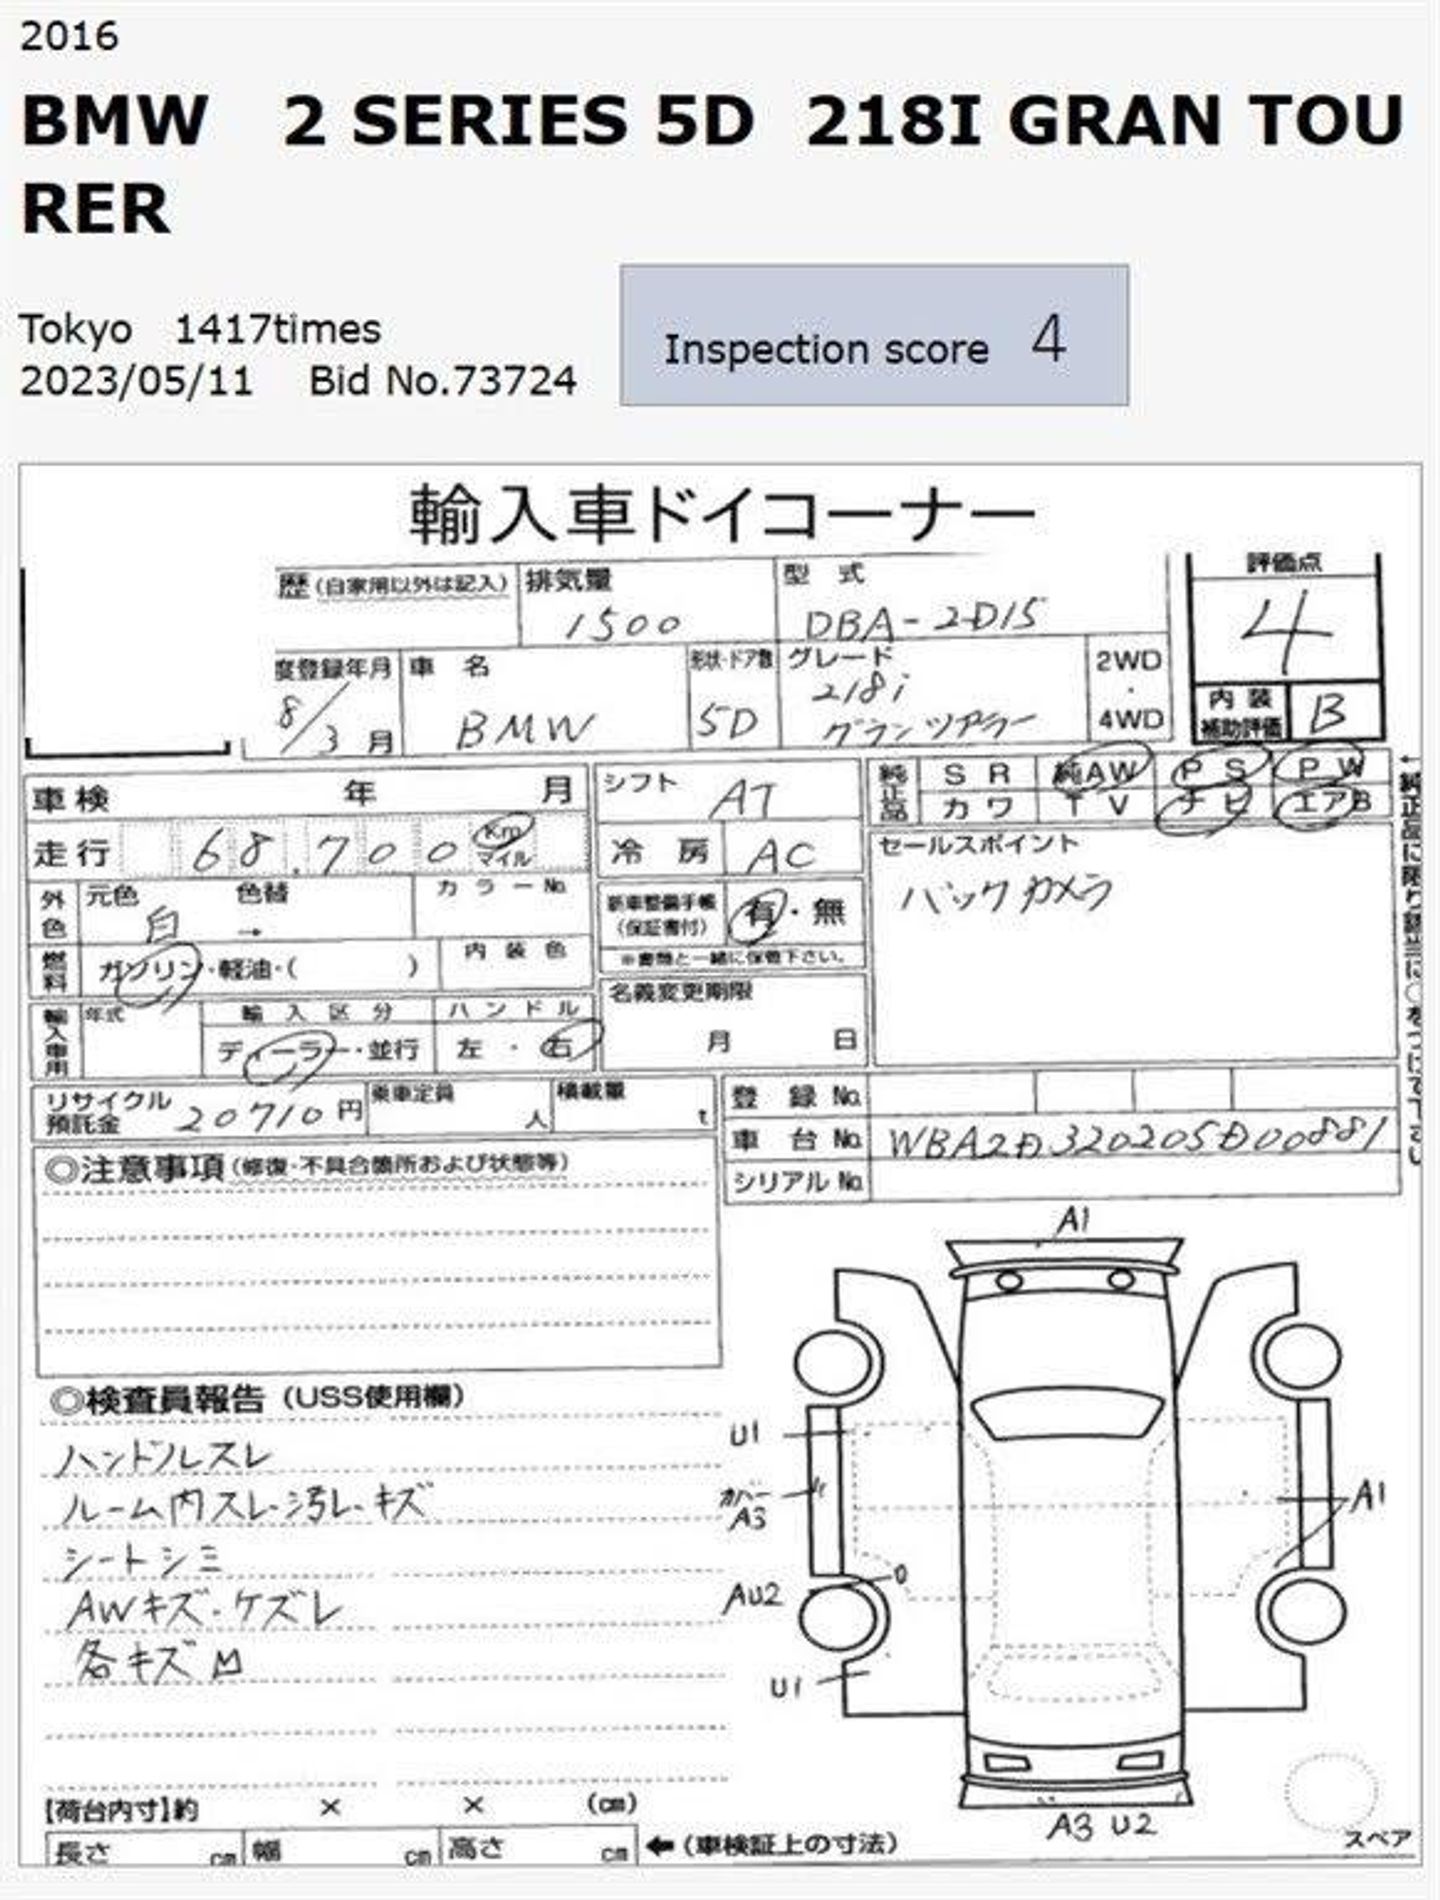 2016
BMW 2 SERIES 5D 218I GRAN TOU
RER
Tokyo 1417times
2023/05/11 Bid No.73724
Inspection score 4
輸入車ドイコーナー
歴(自家用以外は記入) 排気量 型 式 評価点
1500 DBA-2D15 4
度登録年月 車 名 形状・ドア数 グレード 2WD
8/3月 BMW 5D 218i グランツアラー ・ 4WD
内装補助評価 B
車検 年 月 シフト AT 純正品 S R 純AW P S P W
カワ T V ナビ エアB
走行 68.700 Km マイル 冷 房 AC セールスポイント
バックカメラ
外色 元色 白 色替 → カラーNo.
新車整備手帳(保証書付) 有・無
※書類と一緒に保管下さい。
燃料 ガソリン・軽油・( ) 内装色
名義変更期限
月 日
輸入車用 年式 輸入区分 ハンドル
ディーラー・並行 左・右
リサイクル預託金 20710円 乗車定員 人 積載量 t
登 録 No.
車 台 No. WBA2D320205D00881
シリアル No.
◎注意事項(修復・不具合箇所および状態等)
◎検査員報告(USS使用欄)
ハンドルスレ
ルーム内スレ・汚レ・キズ
シートシミ
AWキズ・ケズレ
各キズ
A1
U1
カバー
A3
A1
AU2
U1
A3 U2
スペア
【荷台内寸】約 × × (cm)
長さ cm 幅 cm 高さ cm ←(車検証上の寸法)